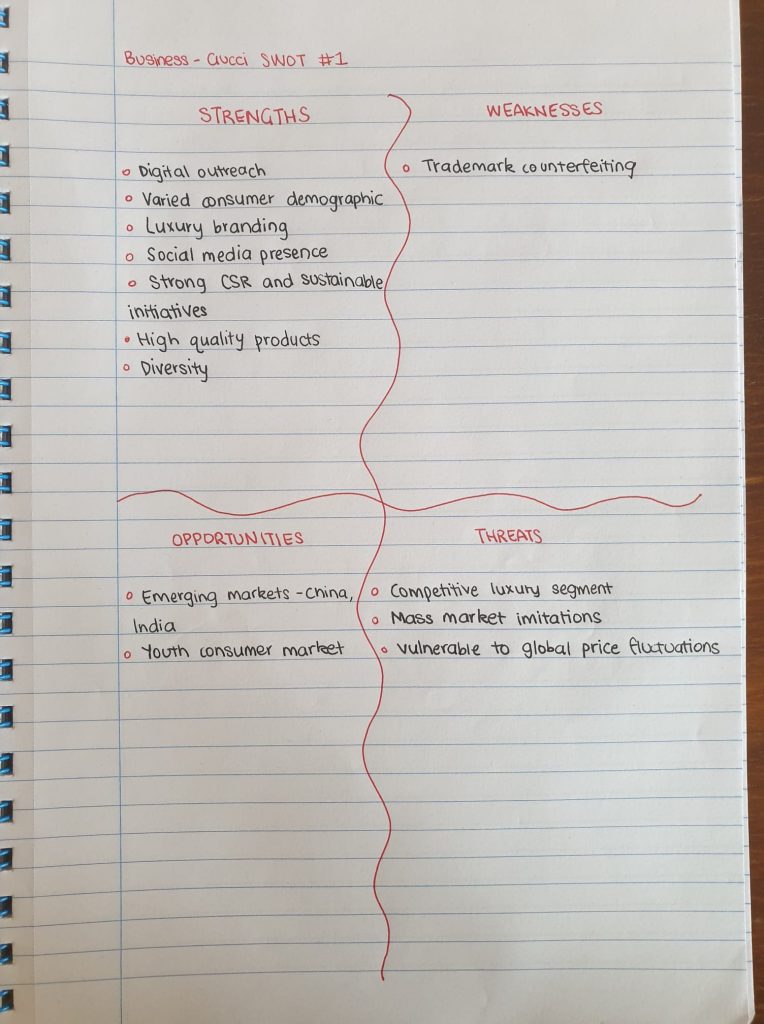 Business - Gucci SWOT #1
STRENGTHS
Digital outreach
Varied consumer demographic
Luxury branding
Social media presence
Strong CSR and sustainable
initiatives
High quality products
Diversity
WEAKNESSES
Trademark counterfeiting
OPPORTUNITIES
Emerging markets - China,
India
Youth consumer market
THREATS
Competitive luxury segment
Mass market imitations
Vulnerable to global price fluctuations